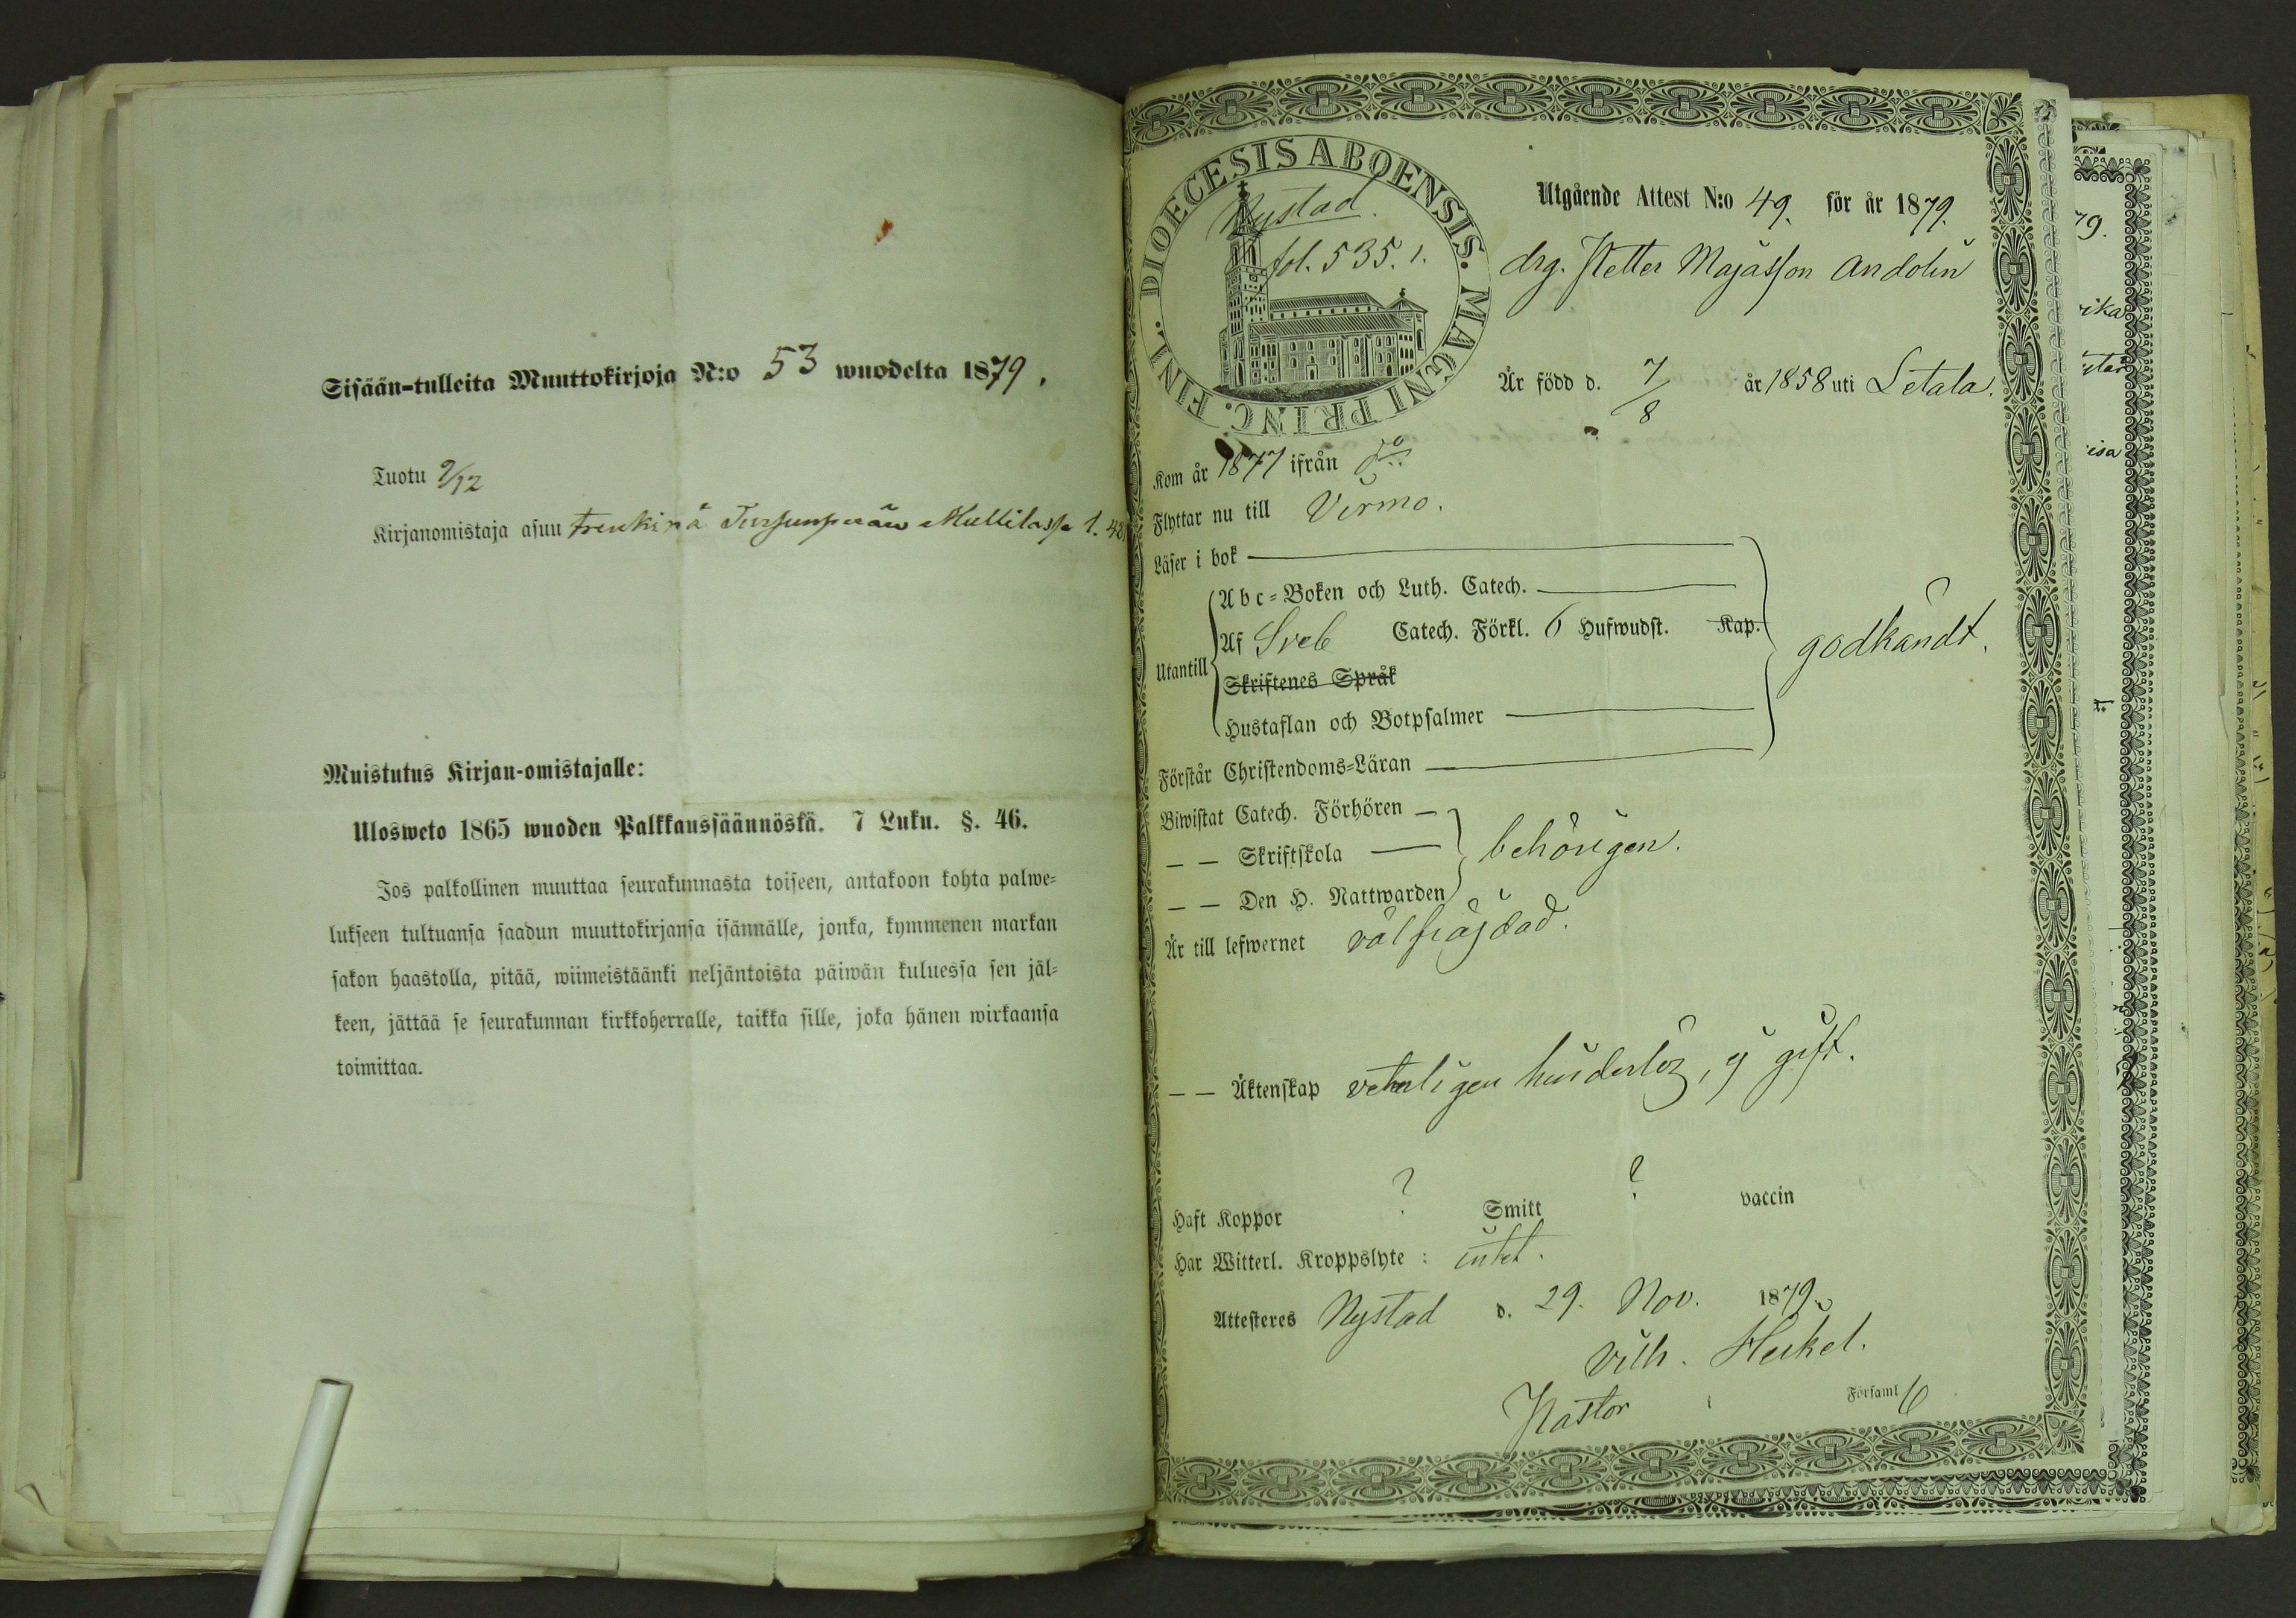 Sisään-tulleita Muuttokirjoja N:o 53 wuodelta 1879.
Tuotu 9/12
Kirjanomistaja asuu trenkinä Mullilassa 1. 48
Muistutus Kirjan-omistajalle:
Ulosweto 1865 wuoden Palkkaussäännöskä. 7 Luku. §. 46.
Jos palkollinen muuttaa seurakunnasta toiseen, antakoon kohta palwe-
lukseen tultuansa saadun muuttokirjansa isännälle, jonka, kymmenen markan
sakon haastolla, pitää, wiimeistäänki neljäntoista päiwän kuluessa sen jäl-
keen, jättää se seurakunnan kirkkoherralle, taikka sille, joka hänen wirkaansa
toimittaa.
DIOECESIS ABOENSIS. MAGNI PRINC. FINL.
Nystad.
fol. 535. 1.
Utgående Attest N:o 49. för år 1879.
drg. Petter Majasson Andolin
Är född d. 7/8 år 1858 uti Letala.
Kom år 1877 ifrån do
Flyttar nu till Virmo.
Läser i bok
Utantill
Abc-Boken och Luth. Catech.
Af Sveb Catech. Förkl. 6 Hufwudst. Kap.
Skriftenes Språk
Hustaflan och Botpsalmer
godkändt.
Förstår Christendoms-Läran
Biwistat Catech. Förhören
— — Skriftskola
— — Den H. Nattwarden
behörigen.
Är till lefwernet välfräjdad.
— — Äktenskap veterligen hinderlös, ej gift.
Haft Koppor ? Smitt ? vaccin
Har Witterl. Kroppslyte: intet.
Attesteres Nystad d. 29. Nov. 1879.
Vilh. Heikel.
Pastor
Församl